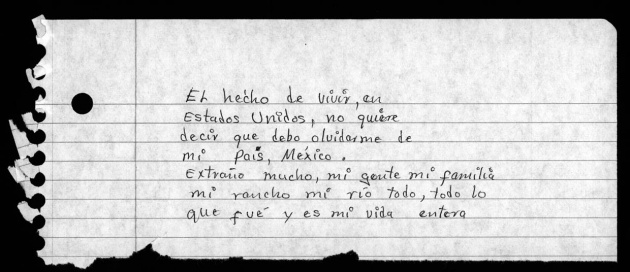 El hecho de vivir, en
Estados Unidos, no quiere
decir que debo olvidarme de
mi País, México.
Extraño mucho, mi gente mi familia
mi rancho mi río todo, todo lo
que fué y es mi vida entera